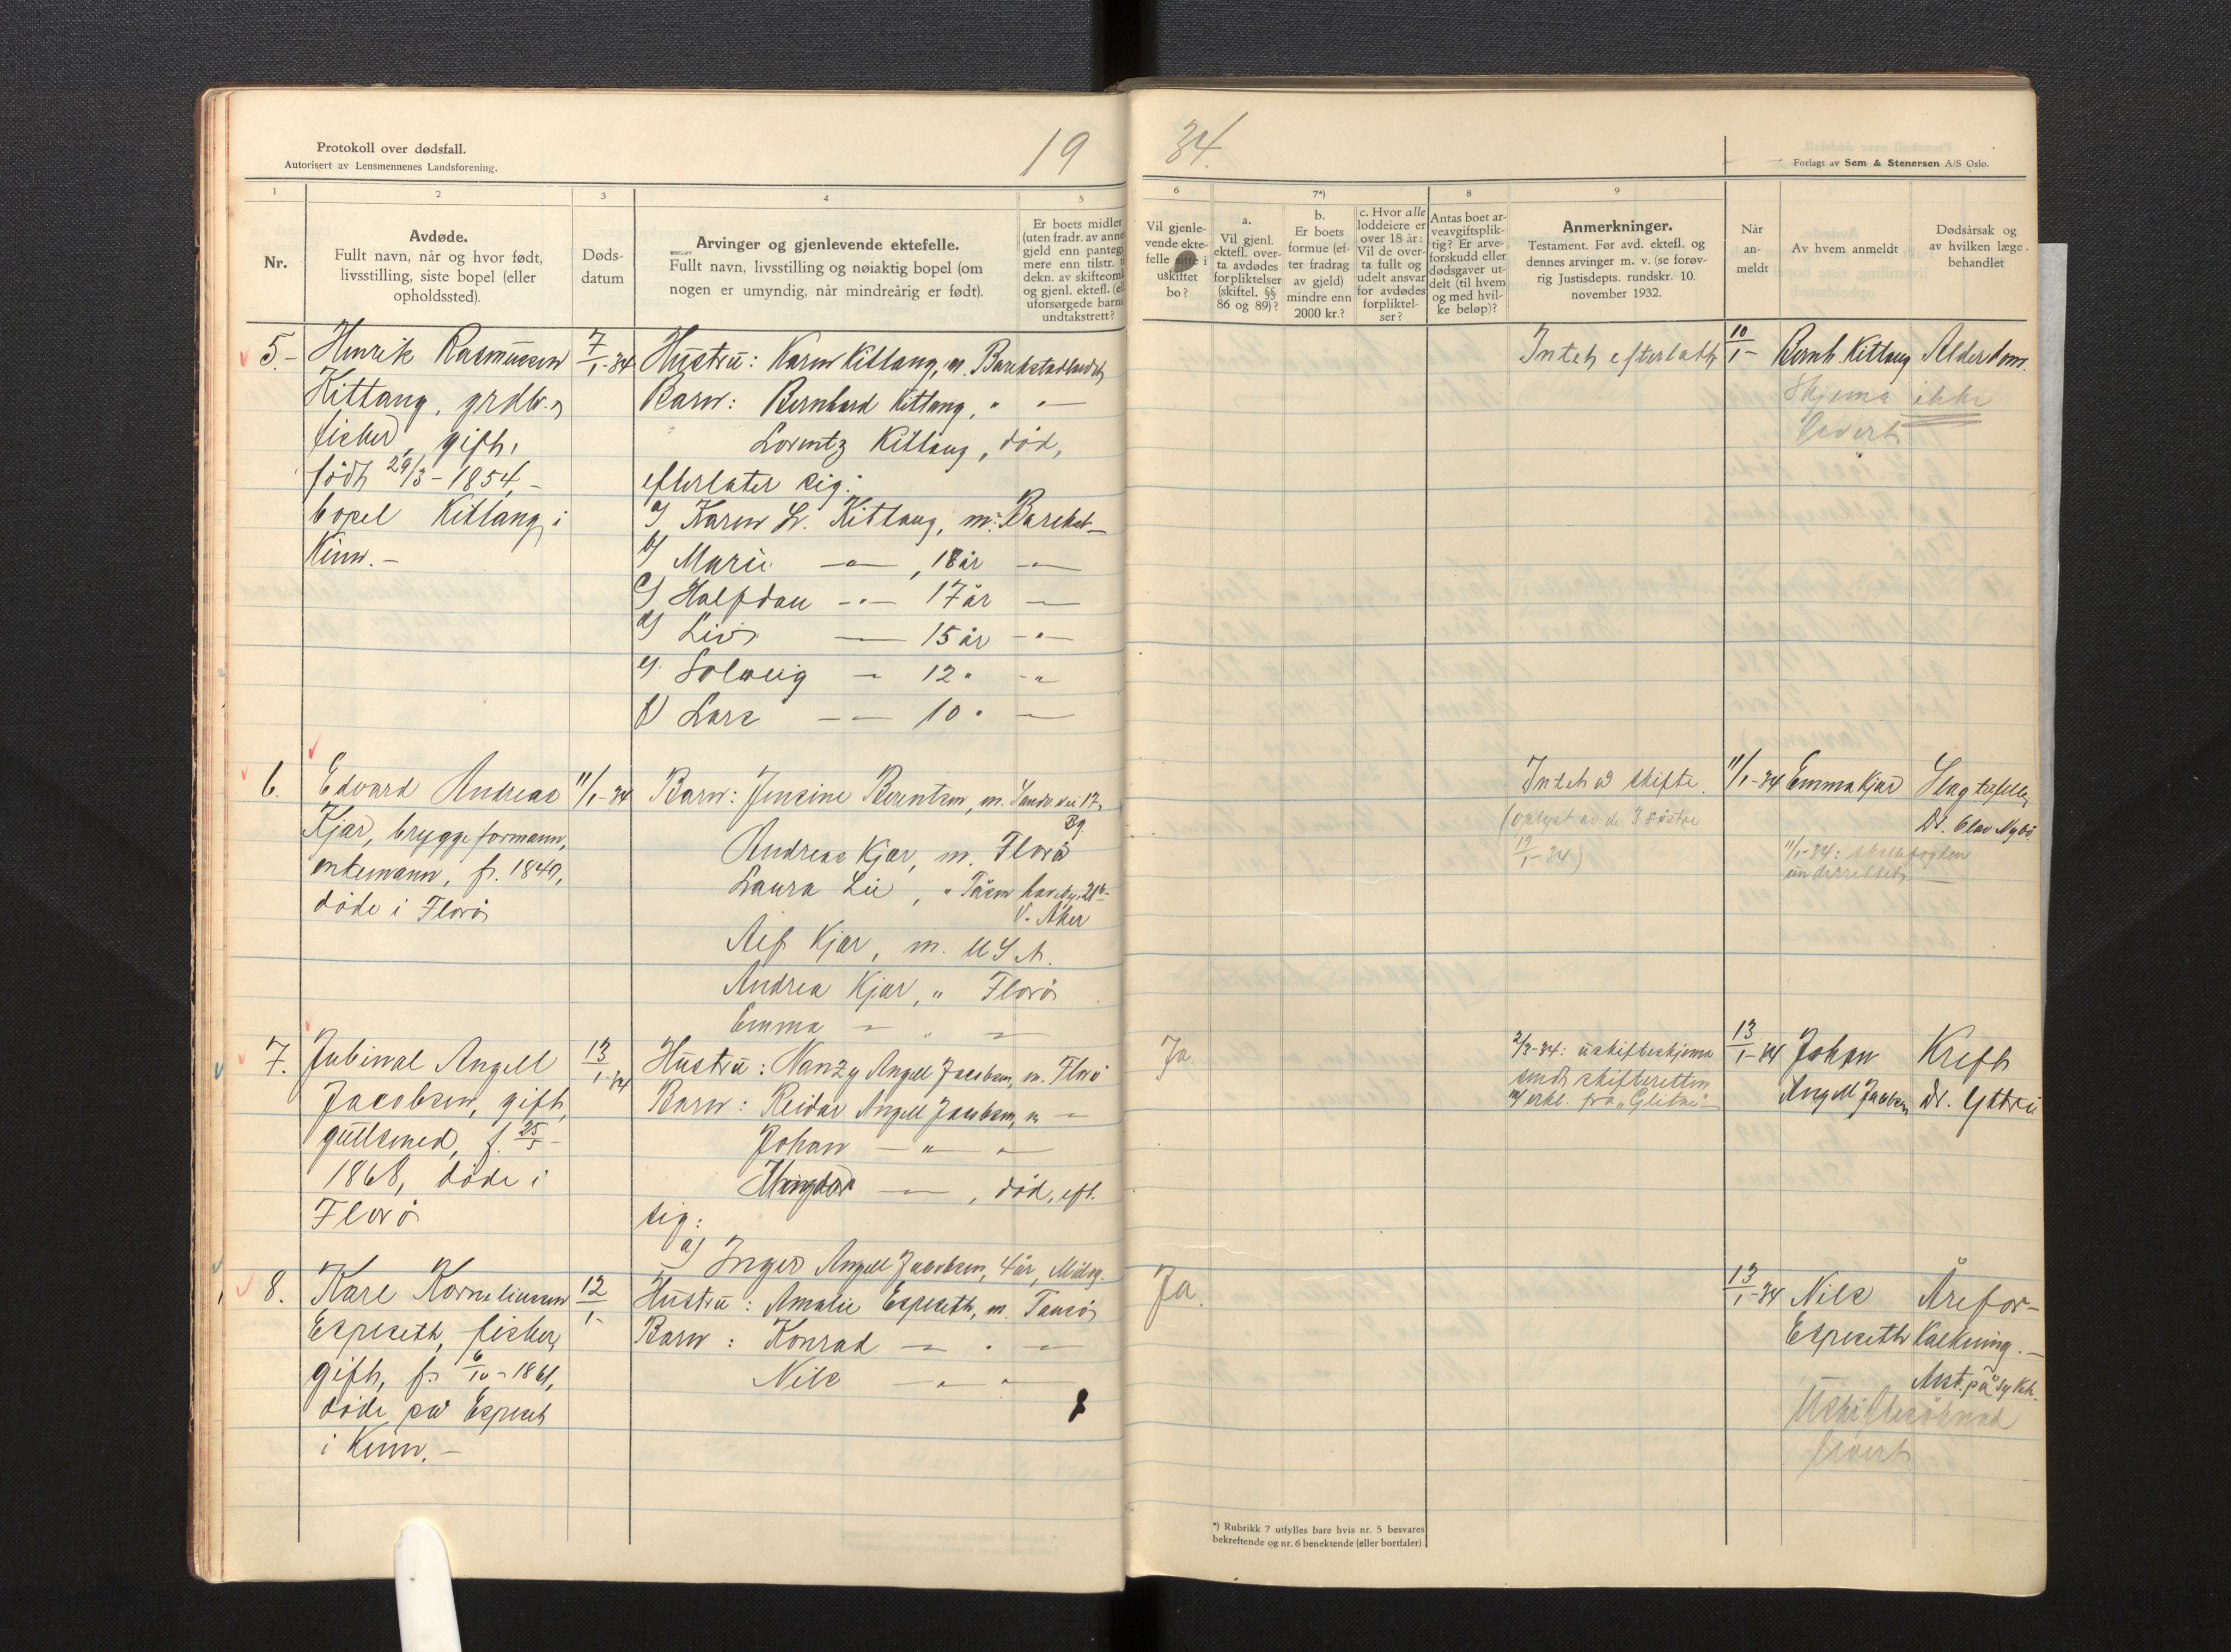 Protokoll over dødsfall.
Autorisert av Lensmennenes Landsforening.
19
34.
Forlagt av Sem & Stenersen A/S Oslo.
1
2
3
4
5
6
7*)
8
9
Nr.
Avdøde.
Fullt navn, når og hvor født,
livsstilling, siste bopel (eller
opholdssted).
Døds-
datum
Arvinger og gjenlevende ektefelle.
Fullt navn, livsstilling og nøiaktig bopel (om
nogen er umyndig, når mindreårig er født).
Er boets midler
(uten fradr. av
gjeld enn
mere enn tilstr.
dekn. av
og gjenl. ektefl.
uforsørgede
undtakstrett?
Vil gjenle-
vende ekte-
felle sitte i
uskiftet
bo?
a.
Vil gjenl.
ektefl. over-
ta avdødes
forpliktelser
(skiftel. §§
86 og 89)?
b.
Er boets
formue (ef-
ter fradrag
av gjeld)
mindre enn
2000 kr.?
c. Hvor alle
loddeiere er
over 18 år:
Vil de over-
ta fullt og
udelt ansvar
for avdødes
forpliktel-
ser?
Antas boet ar-
veavgiftsplik-
tig? Er arve-
forskudd eller
dødsgaver ut-
delt (til hvem
og med hvil-
ke beløp)?
Anmerkninger.
Testament. Før avd. ektefl. og
dennes arvinger m. v. (se forøv-
rig Justisdepts. rundskr. 10.
november 1932.
Når
an-
meldt
Av hvem anmeldt
Dødsårsak og
av hvilken læge
behandlet
5.- Henrik Rasmussen
Kittang, grdbr. &
fisker, gift,
født 29/3-1854,-
bopel Kittang i
Kinn.-
7/1-34
Hustru: Karen Kittang, m. Barekstadlandet
Barn: Bernhard Kittang, " -
Lorentz Kittang, død,
efterlater sig:
a) Karen L. Kittang, m. Barekst-
b) Marie -"- , 18 år -"-
c) Halfdan -"- 17 år -
d) Liv -"- 15 år -"-
e) Solveig - 12 " -"-
f) Lars - - 10 " -
Intet efterlatt
10/1-
Bernh. Kittang
Alderdom.
Skjema ikke
levert
6. Edvard Andreas
Kjær, bryggeformann,
enkemann, f. 1840,
døde i Florø
11/1-34
Barn: Jensine Berentsen, m. Sandv.vei 17,
Bg
Andreas Kjær, m. Florø
Laura Lie, " Tåsen haveby 21b-
V. Aker
Alf Kjær, m. USA.
Andrea Kjær, " Florø
Emma - " -
Intet å skifte.
(oplyst av de 3 søstre
19/1-34)
11/1-34
Emma Kjær
Slagtilfelle,
Dr. Olav Nybø
11/1-34: skattefogden
underrettet
7. Jubinal Angell
Jacobsen, gift,
gullsmed, f. 25/5-
1868, døde i
Florø
13/1-34
Hustru: Nanzy Angell Jacobsen, m. Florø
Barn: Reidar Angell Jacobsen, m -
Johan -"- -"-
Mingdor - , død, eft.
sig:
a) Inger Angell Jacobsen, 4 år, Måløy.
Ja
2/3-34: uskifteskjema
sendt skifteretten
m/ erkl. fra "Glitne"
13/1-34
Johan
Angell Jacobsen
Kreft
Dr. Ytteri
8. Karl Korneliussen
Espeseth, fisker,
gift, f. 6/10-1861,
døde på Espeset
i Kinn.-
12/1-
Hustru: Amalie Espeseth, m. Tansøy
Barn: Konrad - " -
Nils -"- -"-
Ja.
13/1-34
Nils
Espeseth
Årefor-
kalkning.-
Anst. på syKeh.
Uskiftesøknad
levert
*) Rubrikk 7 utfylles bare hvis nr. 5 besvares
bekreftende og nr. 6 benektende (eller bortfaler).